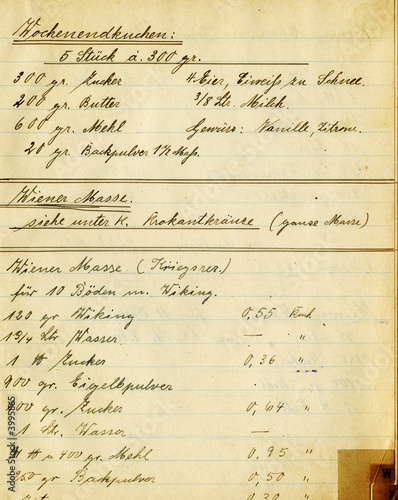 Wochenendkuchen:
5 Stück á. 300 gr.
300 gr. Zucker 4 Eier, Eiweiß zu Schnee.
200 gr. Butter 3/8 Ltr. Milch.
600 gr. Mehl Gewürz: Vanille Zitrone.
20 gr. Backpulver 1½
Wiener Masse.
siehe unter K. Krokantkränze (ganse Masse)
Wiener Masse (Kriegsrez.)
für 10 Böden m. Wiking.
120 gr Wiking 0,55
1 3/4 Ltr Wasser — "
1 ℔ Zucker 0,36 "
900 gr. Eigelbpulver
00 gr. Zucker 0,64 "
1 Ltr. Wasser —
℔ u 400 gr. Mehl 0,95 "
250 gr Backpulver 0,50 "
0,30 "
W